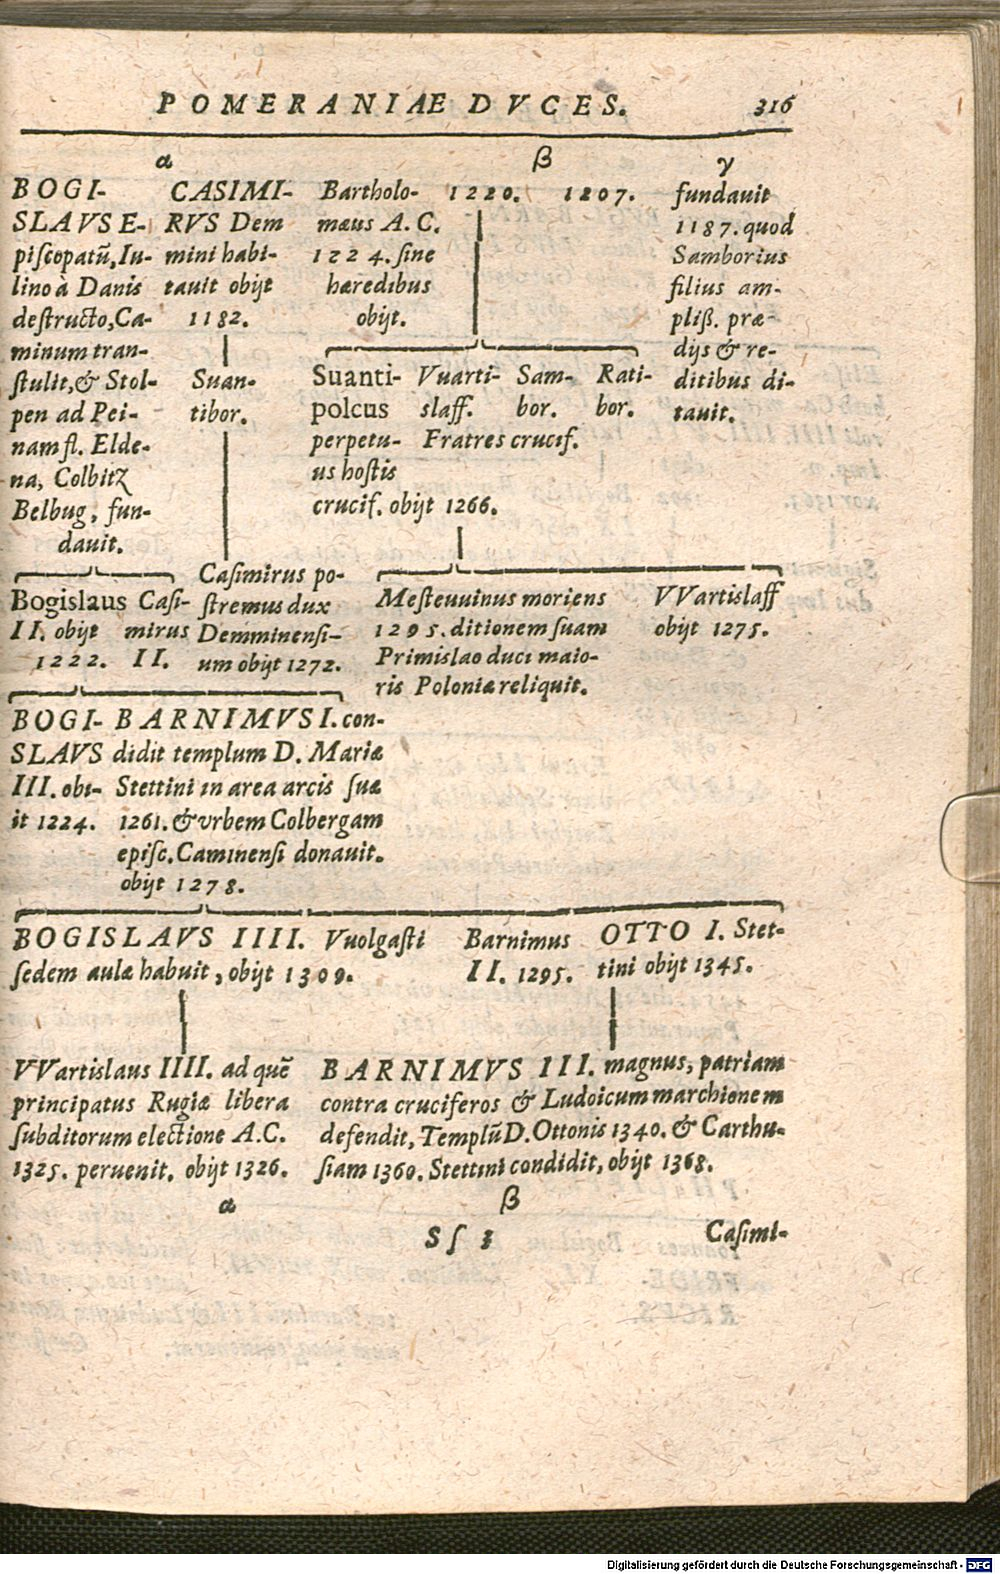 POMERANIÆ DVCES. 316
α
BOGI-
SLAVS E-
piſcopatũ, Iu-
lino à Danis
deſtructo, Ca-
minum tran-
ſtulit, & Stol-
pen ad Pei-
nam fl. Elde-
na, Colbitz
Belbug, fun-
dauit.
CASIMI-
RVS Dem
mini habi-
tauit obijt
1182.
Suan-
tibor.
Caſimirus po-
ſtremus dux
Demminenſi-
um obijt 1272.
β
Bartholo-
mæus A. C.
1224. ſine
hæredibus
obijt.
1220. 1207.
Suanti-
polcus
perpetu-
us hoſtis
crucif. obijt 1266.
Vuarti-
ſlaff.
Sam-
bor.
Rati-
bor.
Fratres crucif.
γ
fundauit
1187. quod
Samborius
filius am-
pliß. præ-
dijs & re-
ditibus di-
tauit.
Bogislaus
II. obijt
1222.
Caſi-
mirus
II.
Meſteuuinus moriens
1295. ditionem ſuam
Primislao duci maio-
ris Poloniæ reliquit.
VVartislaff
obijt 1275.
BOGI-
SLAVS
III. obi-
it 1224.
BARNIMVS I. con-
didit templum D. Mariæ
Stettini in area arcis ſuæ
1261. & vrbem Colbergam
epiſc. Caminenſi donauit.
obijt 1278.
BOGISLAVS IIII. Vuolgaſti
ſedem aulæ habuit, obijt 1309.
Barnimus
II. 1295.
OTTO I. Stet-
tini obijt 1345.
VVartislaus IIII. ad quẽ
principatus Rugiæ libera
ſubditorum electione A.C.
1325. peruenit, obijt 1326.
α
BARNIMVS III. magnus, patriam
contra cruciferos & Ludoicum marchionem
defendit, Templũ D. Ottonis 1340. & Carthu-
ſiam 1360. Stettini condidit, obijt 1368.
β
Sſ 3 Caſimi-
Digitalisierung gefördert durch die Deutsche Forschungsgemeinschaft - DFG